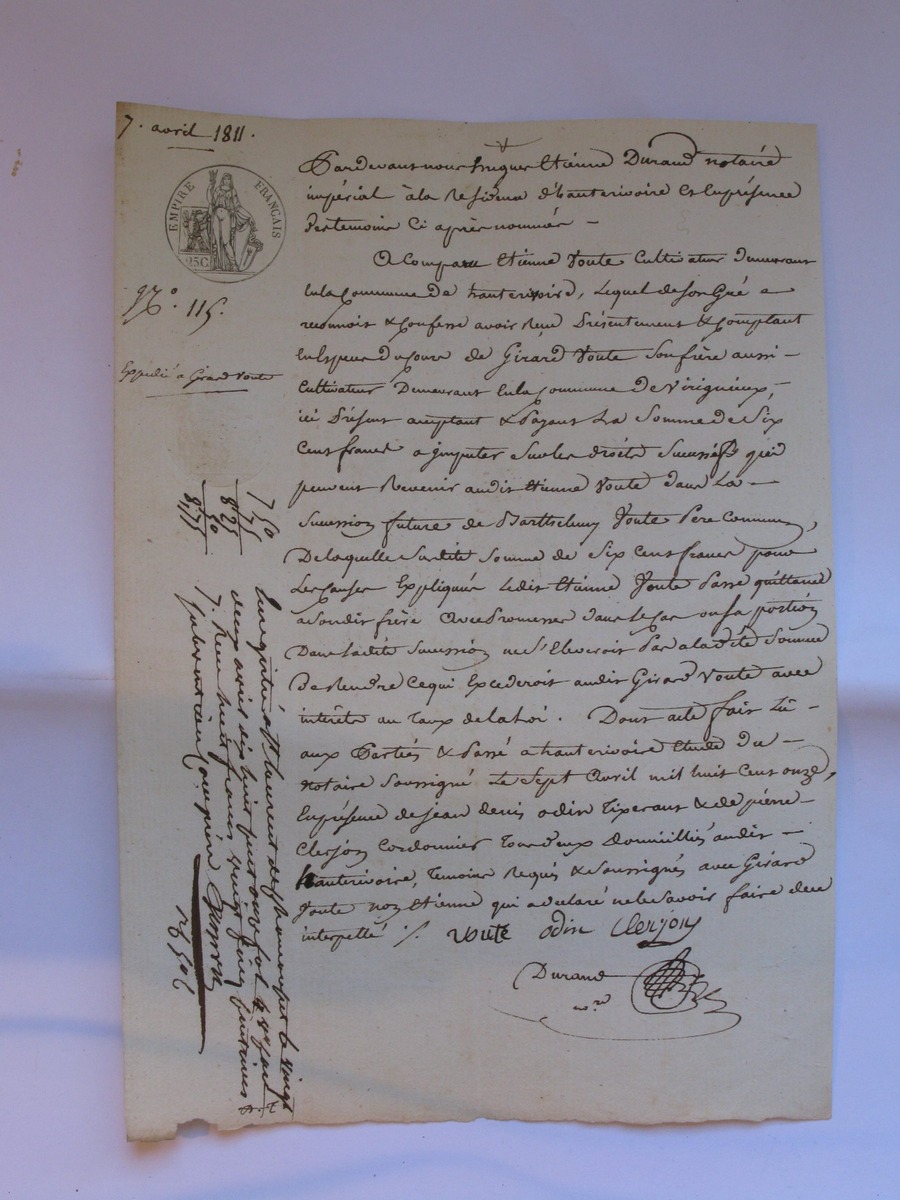 7. avril 1811.
EMPIRE FRANÇAIS
25 C.
N.º 115.
Expedié a Girard Voute
Pardevant nous hugue Etienne Durand notaire
impérial à la Residence d'hauterivoire Et En présence
Des temoins Ci après nommés –
A Comparu Etienne Voute Cultivateur Demeurant
En la Commune De hauterivoire, Lequel de Son Gré a
reconnoit & Confessé avoir Reçu Présentement & Comptant
En Especes Du cours de Girard Voute Son frère aussi –
Cultivateur Demeurant En la Commune De Virigneux, –
ici Présent acceptant & Payant La Somme de Six
Cent francs a imputer Sur les droits Successifs qui
peuvent Revenir audit Etienne Voute Dans La –
Succession future de Barthelemy Voute Pere Commun,
De laquelle Susdite Somme de Six Cent francs pour
Les Causes Expliquées Ledit Etienne Voute Passe quittance
a Son dit frère Avec Promesse Dans le Cas ou Sa portion
Dans Ladite Succession ne S'Eleveroit Pas a ladite Somme
De Rendre Ce qui Excederoit audit Girard Voute avec
intérêts au Taux de la Loi. Dont acte fait Lu
aux Parties & Passé a hauterivoire Etude Du –
notaire Soussigné Le Sept Avril mil huit Cent onze,
En présence de jean denis odin Tixerant & de pierre –
Clerjon Cordonnier Tous Deux Domiciliés audit –
hauterivoire, Temoins Requis & Soussignés avec Girard
Voute non Etienne qui a declaré ne le Savoir faire de ce
interpellé ./.
Voute odin Clerjon
Durand
n.re
7 50
75
8 25
50
8,75
Enregistré a St Laurent de Chamousset le vingt
deux avril dix huit cent onze fol
7. Reçu huit francs vingt cinq centimes